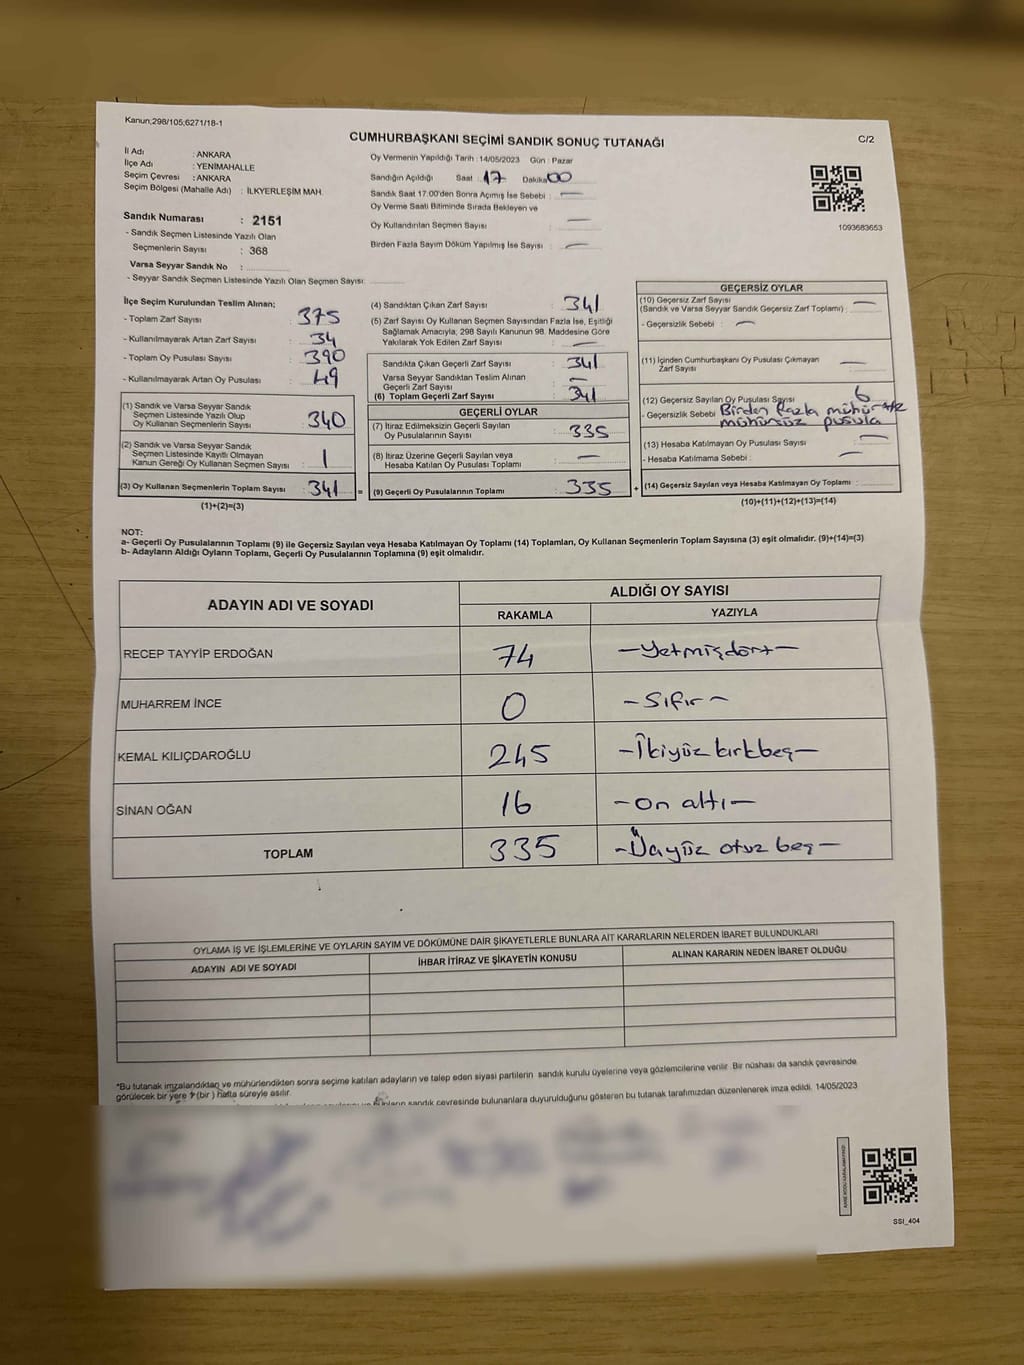 Kanun;298/105;6271/18-1
CUMHURBAŞKANI SEÇİMİ SANDIK SONUÇ TUTANAĞI
C/2
İl Adı : ANKARA
İlçe Adı : YENİMAHALLE
Seçim Çevresi : ANKARA
Seçim Bölgesi (Mahalle Adı) : İLKYERLEŞİM MAH.
Sandık Numarası : 2151
- Sandık Seçmen Listesinde Yazılı Olan
Seçmenlerin Sayısı : 368
Varsa Seyyar Sandık No :
- Seyyar Sandık Seçmen Listesinde Yazılı Olan Seçmen Sayısı:
Oy Vermenin Yapıldığı Tarih : 14/05/2023 Gün : Pazar
Sandığın Açıldığı Saat : 17 Dakika : 00
Sandık Saat 17:00'den Sonra Açımış İse Sebebi : —
Oy Verme Saati Bitiminde Sırada Bekleyen ve
Oy Kullandırılan Seçmen Sayısı : —
Birden Fazla Sayım Döküm Yapılmış İse Sayısı : —
1093683653
İlçe Seçim Kurulundan Teslim Alınan;
- Toplam Zarf Sayısı : 375
- Kullanılmayarak Artan Zarf Sayısı : 34
- Toplam Oy Pusulası Sayısı : 390
- Kullanılmayarak Artan Oy Pusulası : 49
(1) Sandık ve Varsa Seyyar Sandık
Seçmen Listesinde Yazılı Olup
Oy Kullanan Seçmenlerin Sayısı : 340
(2) Sandık ve Varsa Seyyar Sandık
Seçmen Listesinde Kayıtlı Olmayan
Kanun Gereği Oy Kullanan Seçmen Sayısı : 1
(3) Oy Kullanan Seçmenlerin Toplam Sayısı : 341 =
(1)+(2)=(3)
(4) Sandıktan Çıkan Zarf Sayısı : 341
(5) Zarf Sayısı Oy Kullanan Seçmen Sayısından Fazla İse, Eşitliği
Sağlamak Amacıyla; 298 Sayılı Kanunun 98. Maddesine Göre
Yakılarak Yok Edilen Zarf Sayısı : —
Sandıkta Çıkan Geçerli Zarf Sayısı : 341
Varsa Seyyar Sandıktan Teslim Alınan
Geçerli Zarf Sayısı : —
(6) Toplam Geçerli Zarf Sayısı : 341
GEÇERLİ OYLAR
(7) İtiraz Edilmeksizin Geçerli Sayılan
Oy Pusulalarının Sayısı : 335
(8) İtiraz Üzerine Geçerli Sayılan veya
Hesaba Katılan Oy Pusulası Toplamı : —
(9) Geçerli Oy Pusulalarının Toplamı : 335 +
GEÇERSİZ OYLAR
(10) Geçersiz Zarf Sayısı
(Sandık ve Varsa Seyyar Sandık Geçersiz Zarf Toplamı) : —
- Geçersizlik Sebebi : —
(11) İçinden Cumhurbaşkanı Oy Pusulası Çıkmayan
Zarf Sayısı : —
(12) Geçersiz Sayılan Oy Pusulası Sayısı : 6
- Geçersizlik Sebebi : Birden fazla mühür
mühürsüz pusula
(13) Hesaba Katılmayan Oy Pusulası Sayısı : —
- Hesaba Katılmama Sebebi : —
(14) Geçersiz Sayılan veya Hesaba Katılmayan Oy Toplamı :
(10)+(11)+(12)+(13)=(14)
NOT:
a- Geçerli Oy Pusulalarının Toplamı (9) ile Geçersiz Sayılan veya Hesaba Katılmayan Oy Toplamı (14) Toplamları, Oy Kullanan Seçmenlerin Toplam Sayısına (3) eşit olmalıdır. (9)+(14)=(3)
b- Adayların Aldığı Oyların Toplamı, Geçerli Oy Pusulalarının Toplamına (9) eşit olmalıdır.
ADAYIN ADI VE SOYADI
ALDIĞI OY SAYISI
RAKAMLA YAZIYLA
RECEP TAYYİP ERDOĞAN 74 —Yetmişdört—
MUHARREM İNCE 0 —Sıfır—
KEMAL KILIÇDAROĞLU 245 —İkiyüz kırkbeş—
SİNAN OĞAN 16 —On altı—
TOPLAM 335 —Üçyüz otuz beş—
OYLAMA İŞ VE İŞLEMLERİNE VE OYLARIN SAYIM VE DÖKÜMÜNE DAİR ŞİKAYETLERLE BUNLARA AİT KARARLARIN NELERDEN İBARET BULUNDUKLARI
ADAYIN ADI VE SOYADI İHBAR İTİRAZ VE ŞİKAYETİN KONUSU ALINAN KARARIN NEDEN İBARET OLDUĞU
*Bu tutanak imzalandıktan ve mühürlendikten sonra seçime katılan adayların ve talep eden siyasi partilerin sandık kurulu üyelerine veya gözlemcilerine verilir. Bir nüshası da sandık çevresinde
görülecek bir yere 1 (bir) hafta süreyle asılır.
sandık çevresinde bulunanlara duyurulduğunu gösteren bu tutanak tarafımızdan düzenlenerek imza edildi. 14/05/2023
SSI_404